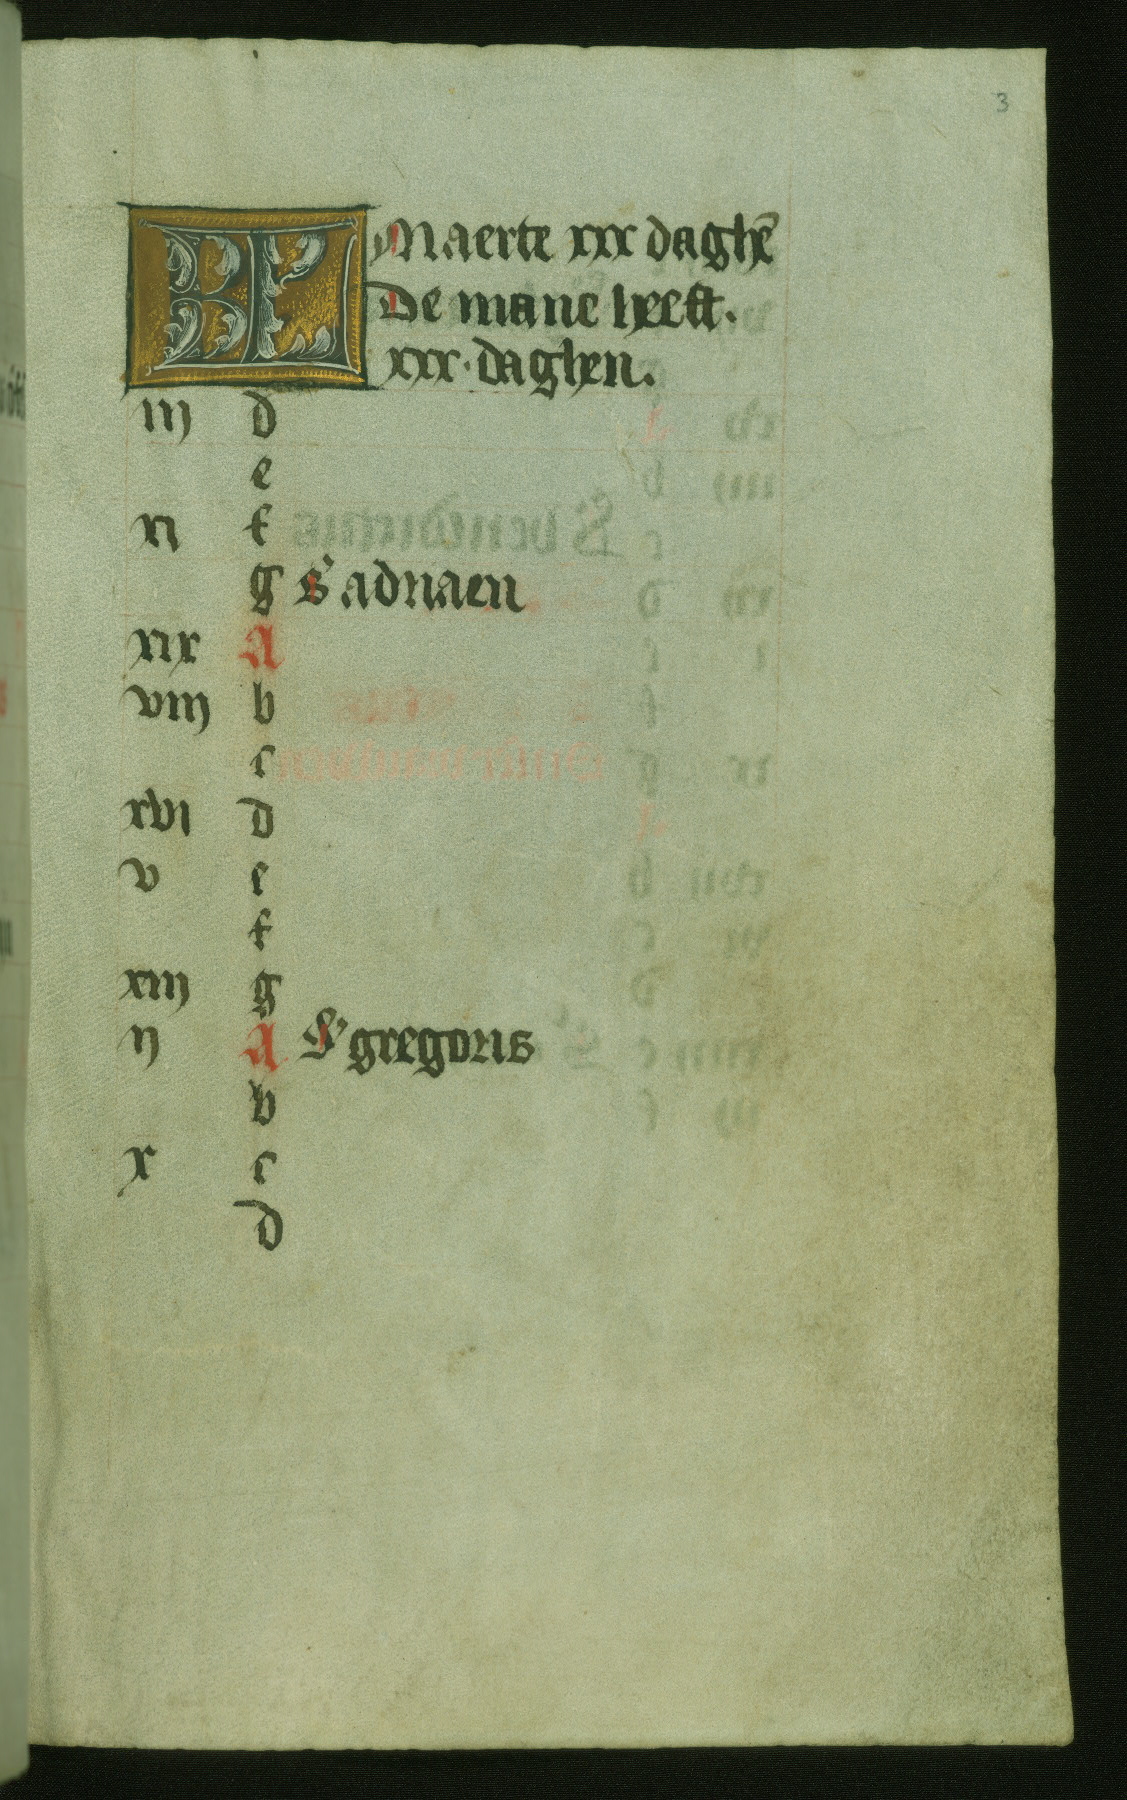 3
KL Maerte xxx daghē
De mane heeft.
xxx. daghen.
iij d
e
xi f
g S adriaen
xix A
viij b
c
xvi d
v e
f
xiij g
ij A S gregoris
b
x c
d